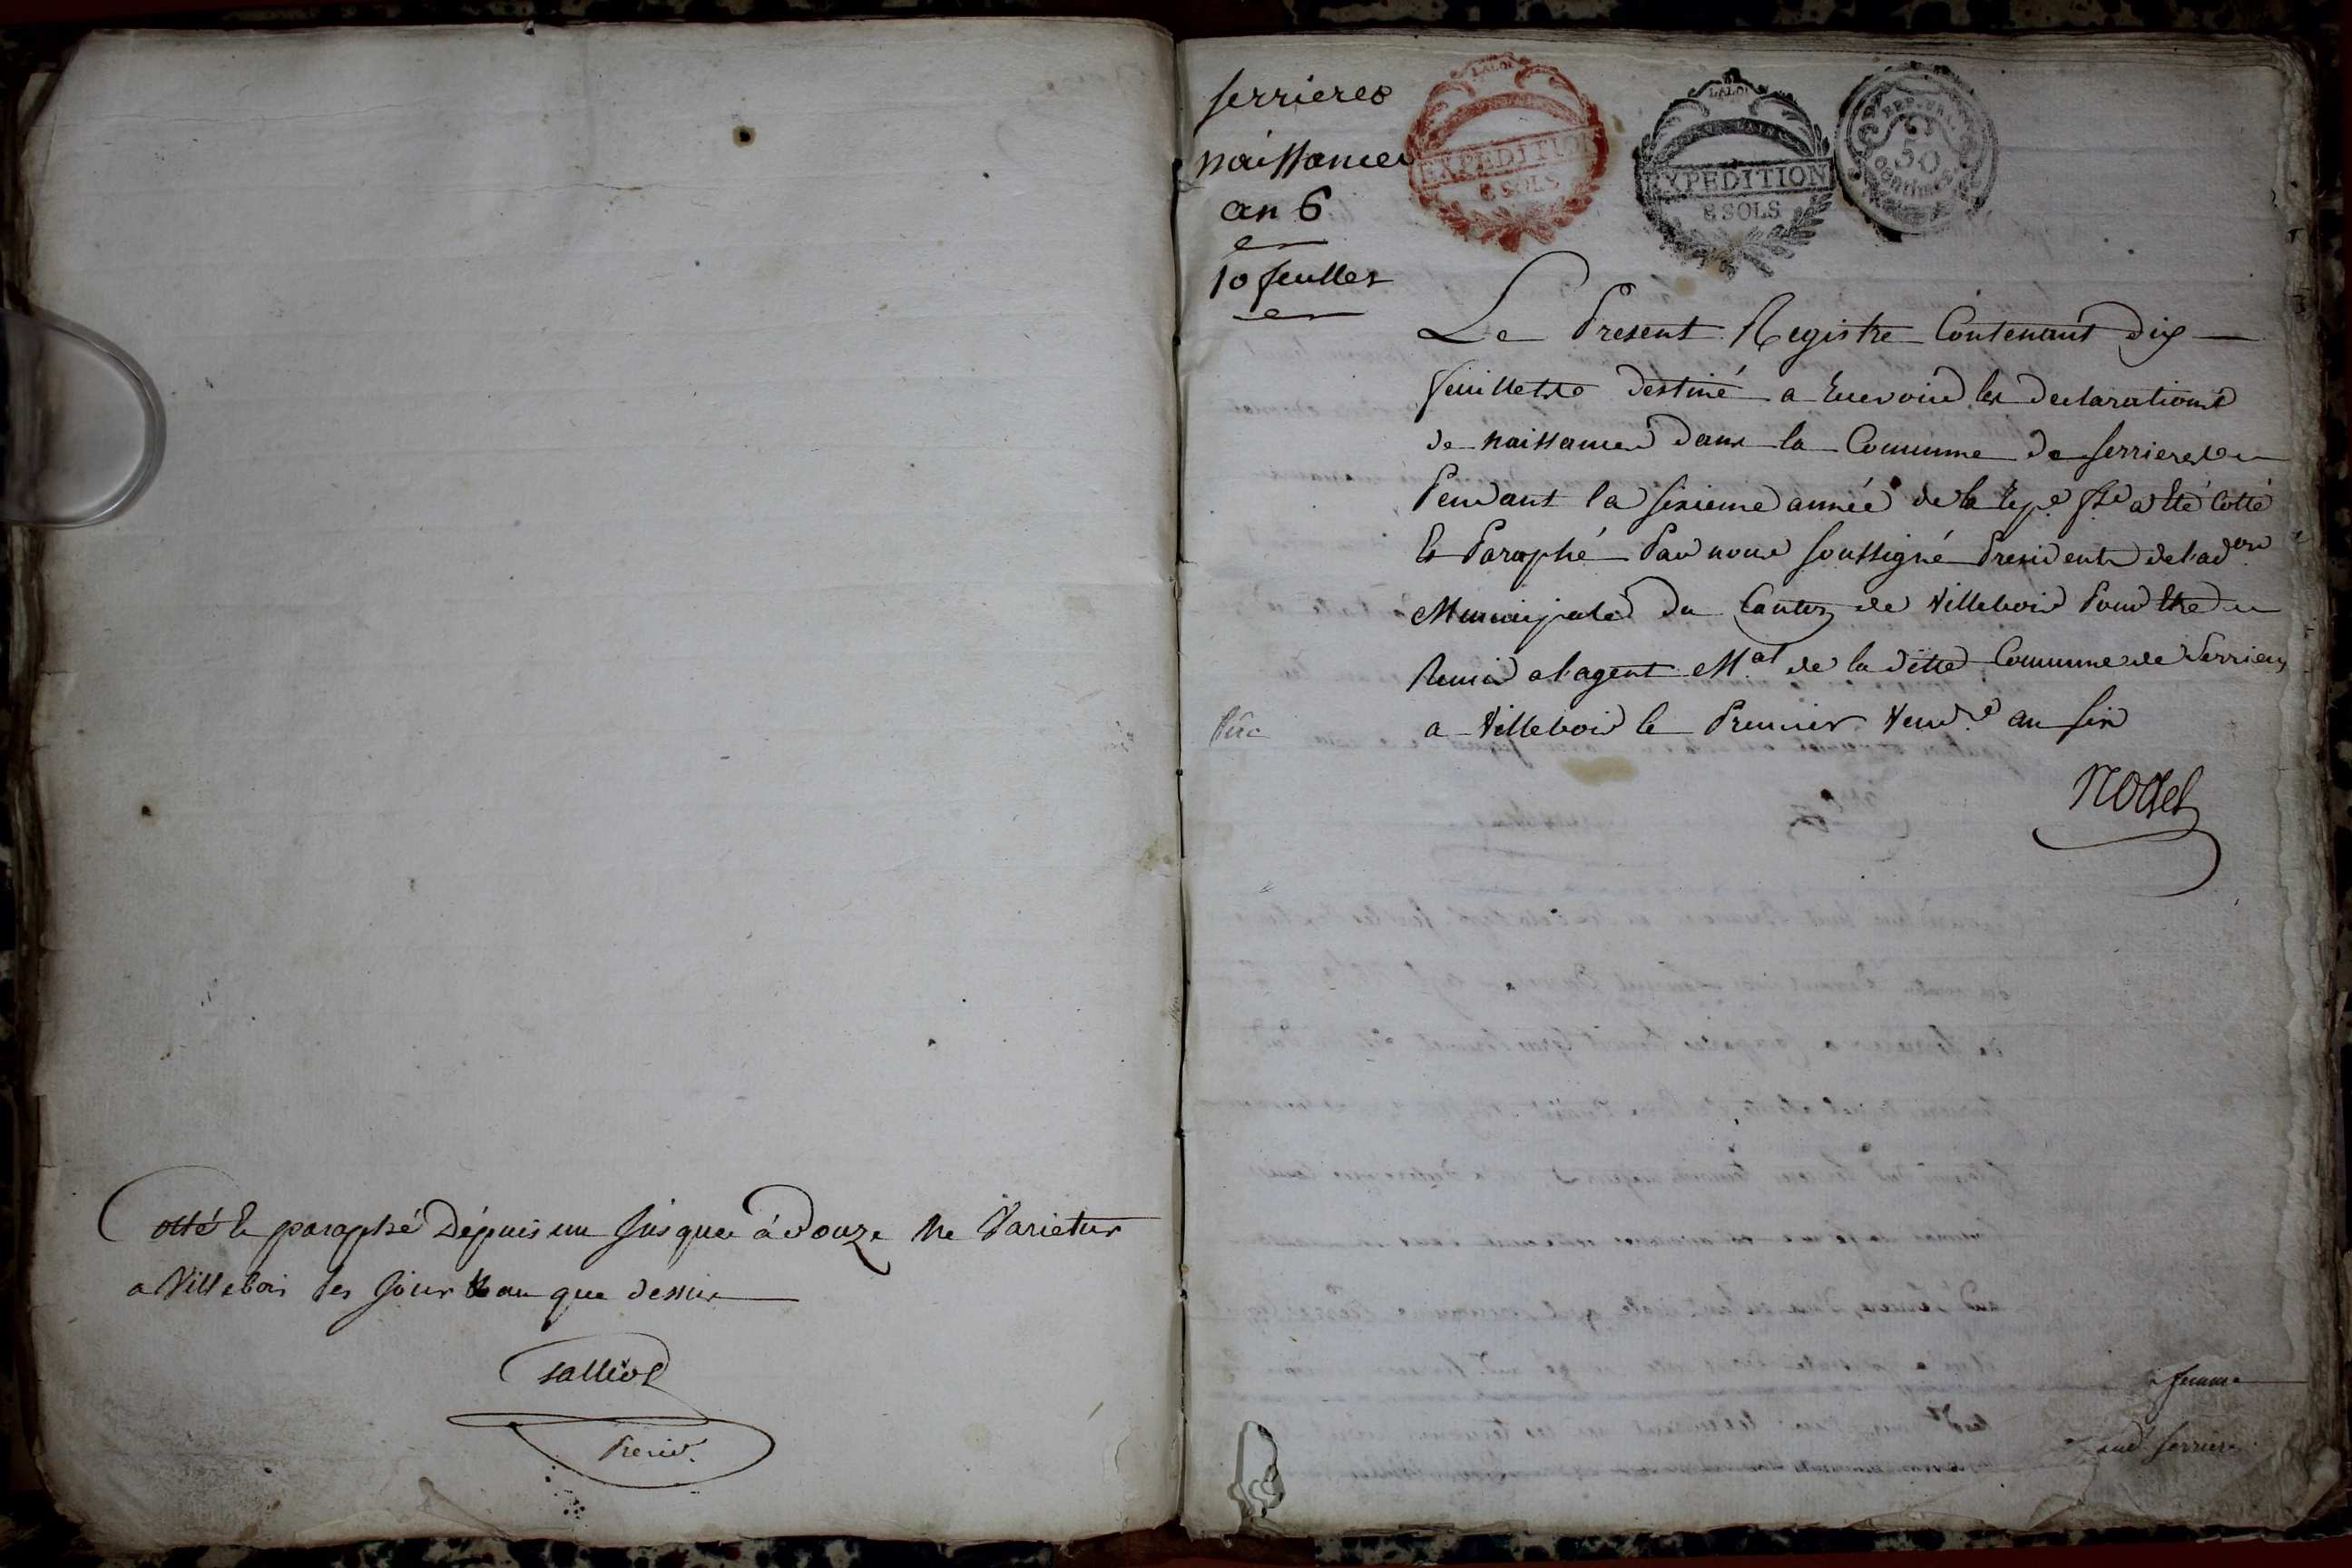 Cotté et paraphé Dépuis un jusques à Douze Ne Varietur
a Villebois les jour et an que dessus
salliol
Presid.
serrieres
naissances
an 6
10 feuilles
LA LOI
EXPEDITION
8 SOLS
LA LOI
EXPEDITION
8 SOLS
REP. FRA.
50
Centimes
Le Present Registre Contenant dix
feuillets destiné a Recevoir les declarations
de naissances dans la Commune de serrieres
Pendant la sixieme année de la Rep.e f.se a Eté Cotté
Et Paraphé Par nous soussigné President de l'ad.on
Municipale du Canton de Villebois Pour Etre
Remis a l'agent M.al de la ditte Commune de Serrieres
a Villebois le Premier Vend.re an six
NOdet
femme
aud serriere